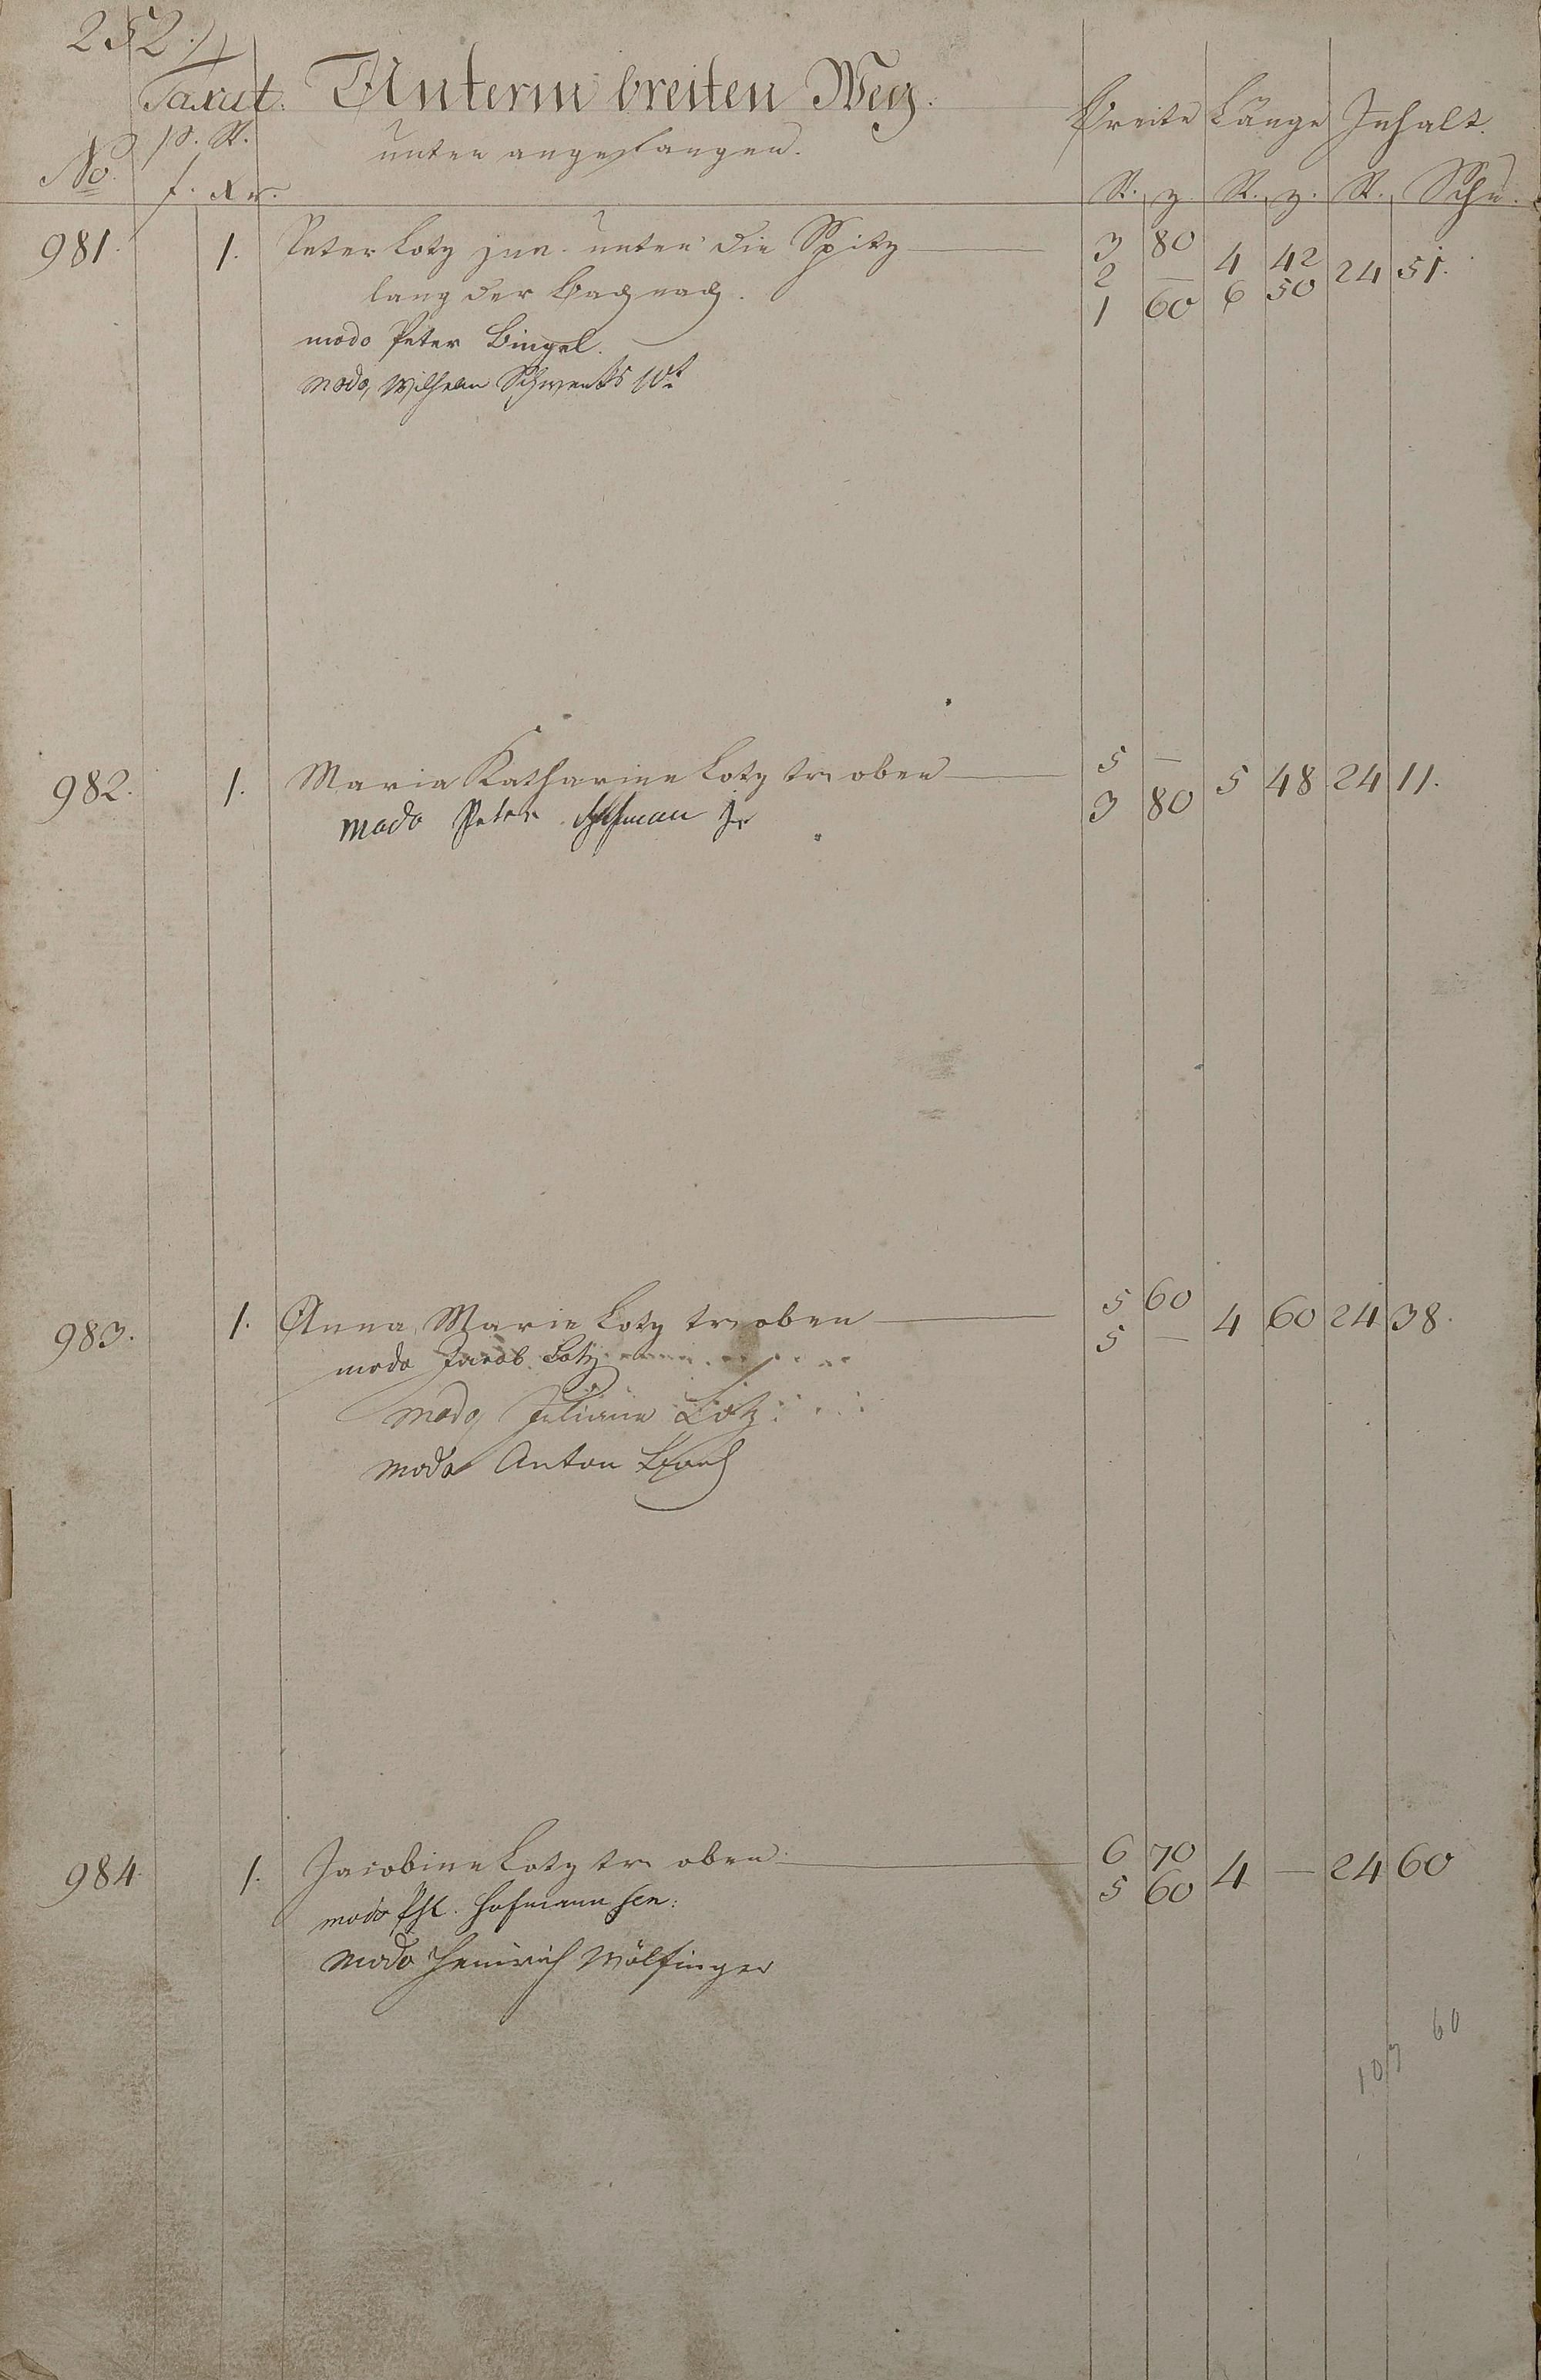 252.
Taxat. Unterm breiten Weg. Breite Länge Inhalt.
p. R. unten angefangen.
No. f. Xr. R. z. R. z. R. Schu.
981. 1. Peter Lotz jun. unten die Spitz 3 80 4 42 24 51.
lang der Bach nach. 2 — 6 50
1 60
modo Peter Bingel.
modo, Wilhelm Schwenks Wt
982. 1. Maria Katharine Lotz tr. oben 5 — 5 48 24 11.
modo Peter Hofman jr 3 80
983. 1. Anna Marie Lotz tr. oben 5 60 4 60 24 38.
modo Jacob Lotz 5 —
modo Juliane Lotz
modo Anton
984. 1. Jacobine Lotz tr. oben 6 70 4 — 24 60
modo Phl. Hofmann sen: 5 60
modo Heinrich Wölfinger
60